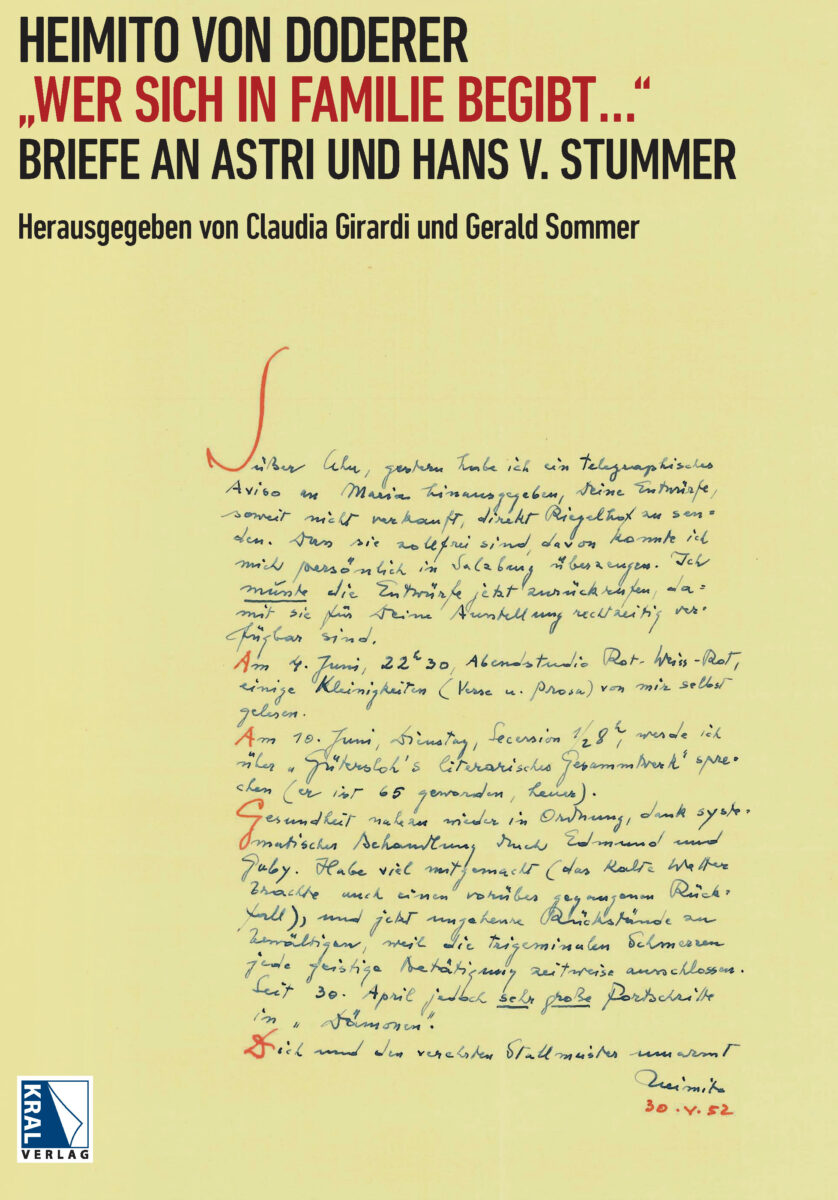 HEIMITO VON DODERER
„WER SICH IN FAMILIE BEGIBT...“
BRIEFE AN ASTRI UND HANS V. STUMMER
Herausgegeben von Claudia Girardi und Gerald Sommer
Süßer Ahn, gestern habe ich ein telegraphisches
Aviso an Maria hinausgegeben, Deine Entwürfe,
soweit nicht verkauft, direkt Riegelhof zu sen-
den. Dass sie zollfrei sind, davon konnte ich
mich persönlich in Salzburg überzeugen. Ich
musste die Entwürfe jetzt zurückrufen, da-
mit sie für Deine Ausstellung rechtzeitig ver-
fügbar sind.
Am 4. Juni, 22h 30, Abendstudio Rot-Weiss-Rot,
einige Kleinigkeiten (Verse u. Prosa) von mir selbst
gelesen.
Am 10. Juni, Dienstag, Secession 1/2 8h, werde ich
über „Gütersloh's literarisches Gesammtwerk“ spre-
chen (er ist 65 geworden, heuer).
Gesundheit nahezu wieder in Ordnung, dank syste-
matischer Behandlung durch Edmund und
Gaby. Habe viel mitgemacht (das kalte Wetter
brachte auch einen vorüber gegangenen Rück-
fall), und jetzt ungeheure Rückstände zu
bewältigen, weil die trigeminalen Schmerzen
jede geistige Betätigung zeitweise ausschlossen.
Seit 30. April jedoch sehr große Fortschritte
in „Dämonen“.
Dich und den verehrten Stallmeister umarmt
Heimito
30.V.52
KRAL
VERLAG